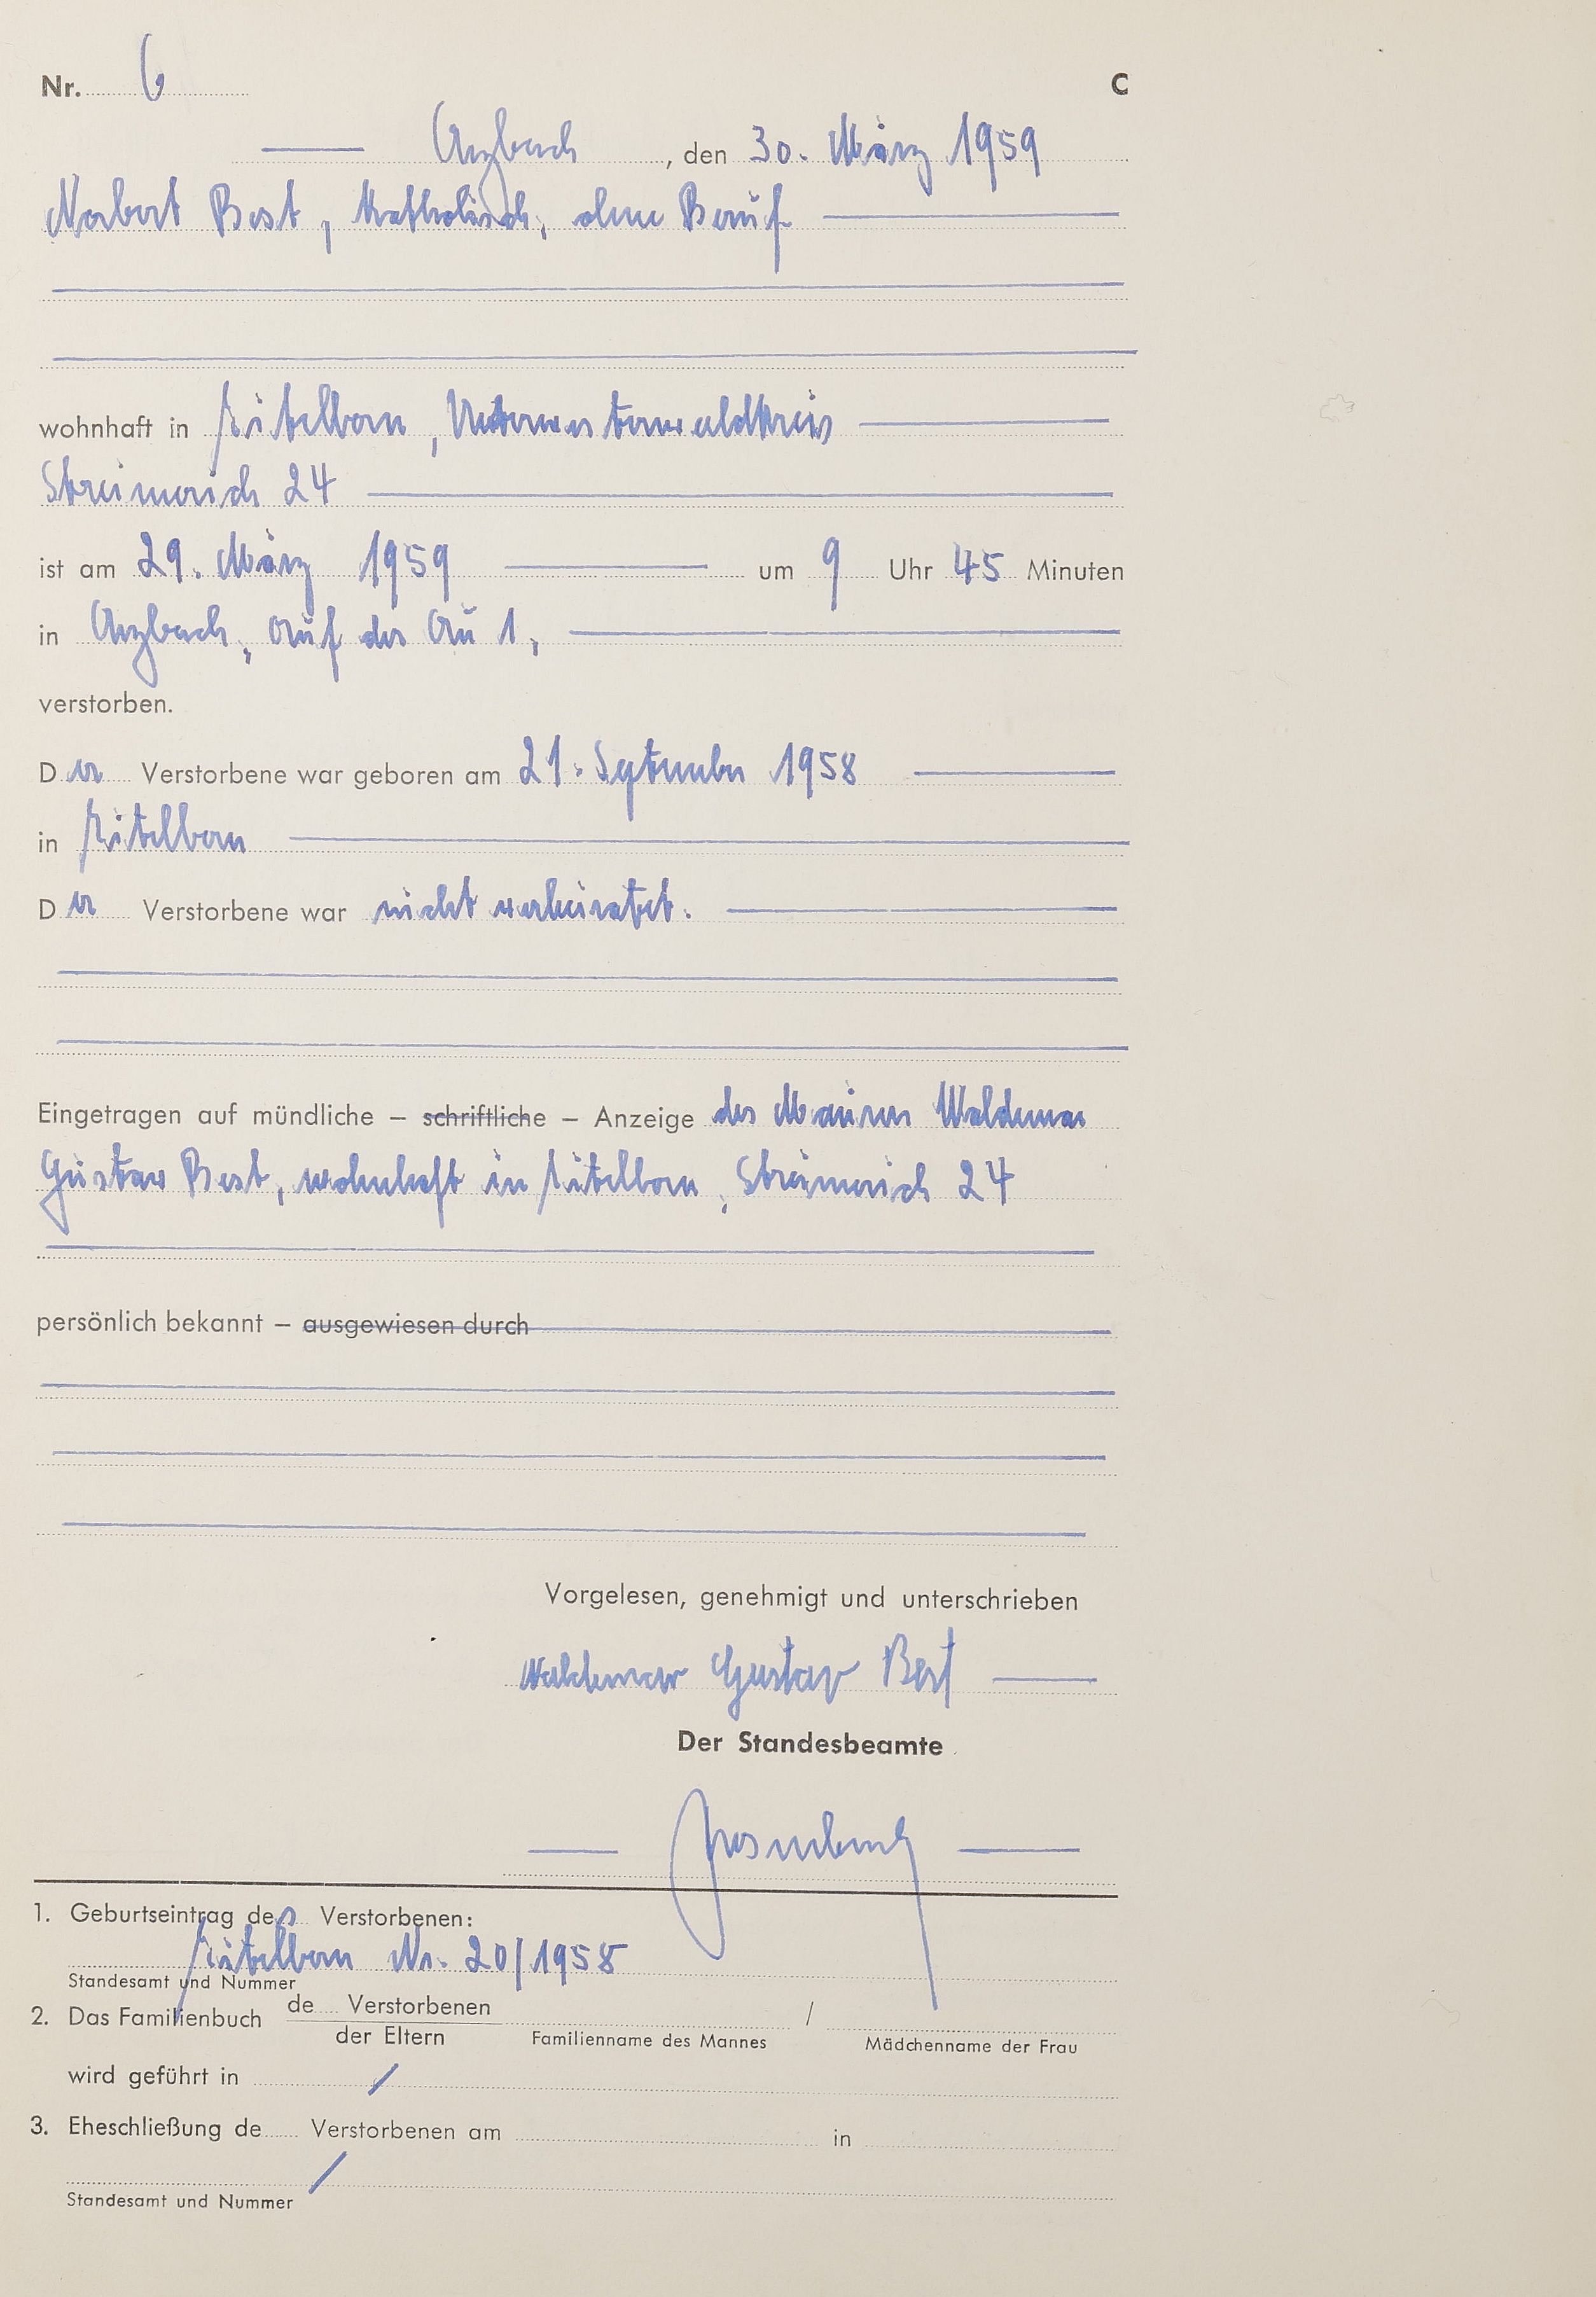 Nr. 6 C
Arzbach, den 30. März 1959
Norbert Best, katholisch, ohne Beruf
wohnhaft in Eitelborn, Unterwesterwaldkreis
Streimerich 24
ist am 29. März 1959 um 9 Uhr 45 Minuten
in Arzbach, auf der Au 1,
verstorben.
Der Verstorbene war geboren am 21. September 1958
in Eitelborn
Der Verstorbene war nicht verheiratet.
Eingetragen auf mündliche – schriftliche – Anzeige des Maurers Waldemar
Gustav Best, wohnhaft in Eitelborn, Streimerich 24
persönlich bekannt – ausgewiesen durch
Vorgelesen, genehmigt und unterschrieben
Waldemar Gustav Best
Der Standesbeamte
1. Geburtseintrag des Verstorbenen:
Eitelborn Nr. 20/1958
Standesamt und Nummer
2. Das Familienbuch de Verstorbenen /
der Eltern Familienname des Mannes Mädchenname der Frau
wird geführt in /
3. Eheschließung de Verstorbenen am in
/
Standesamt und Nummer